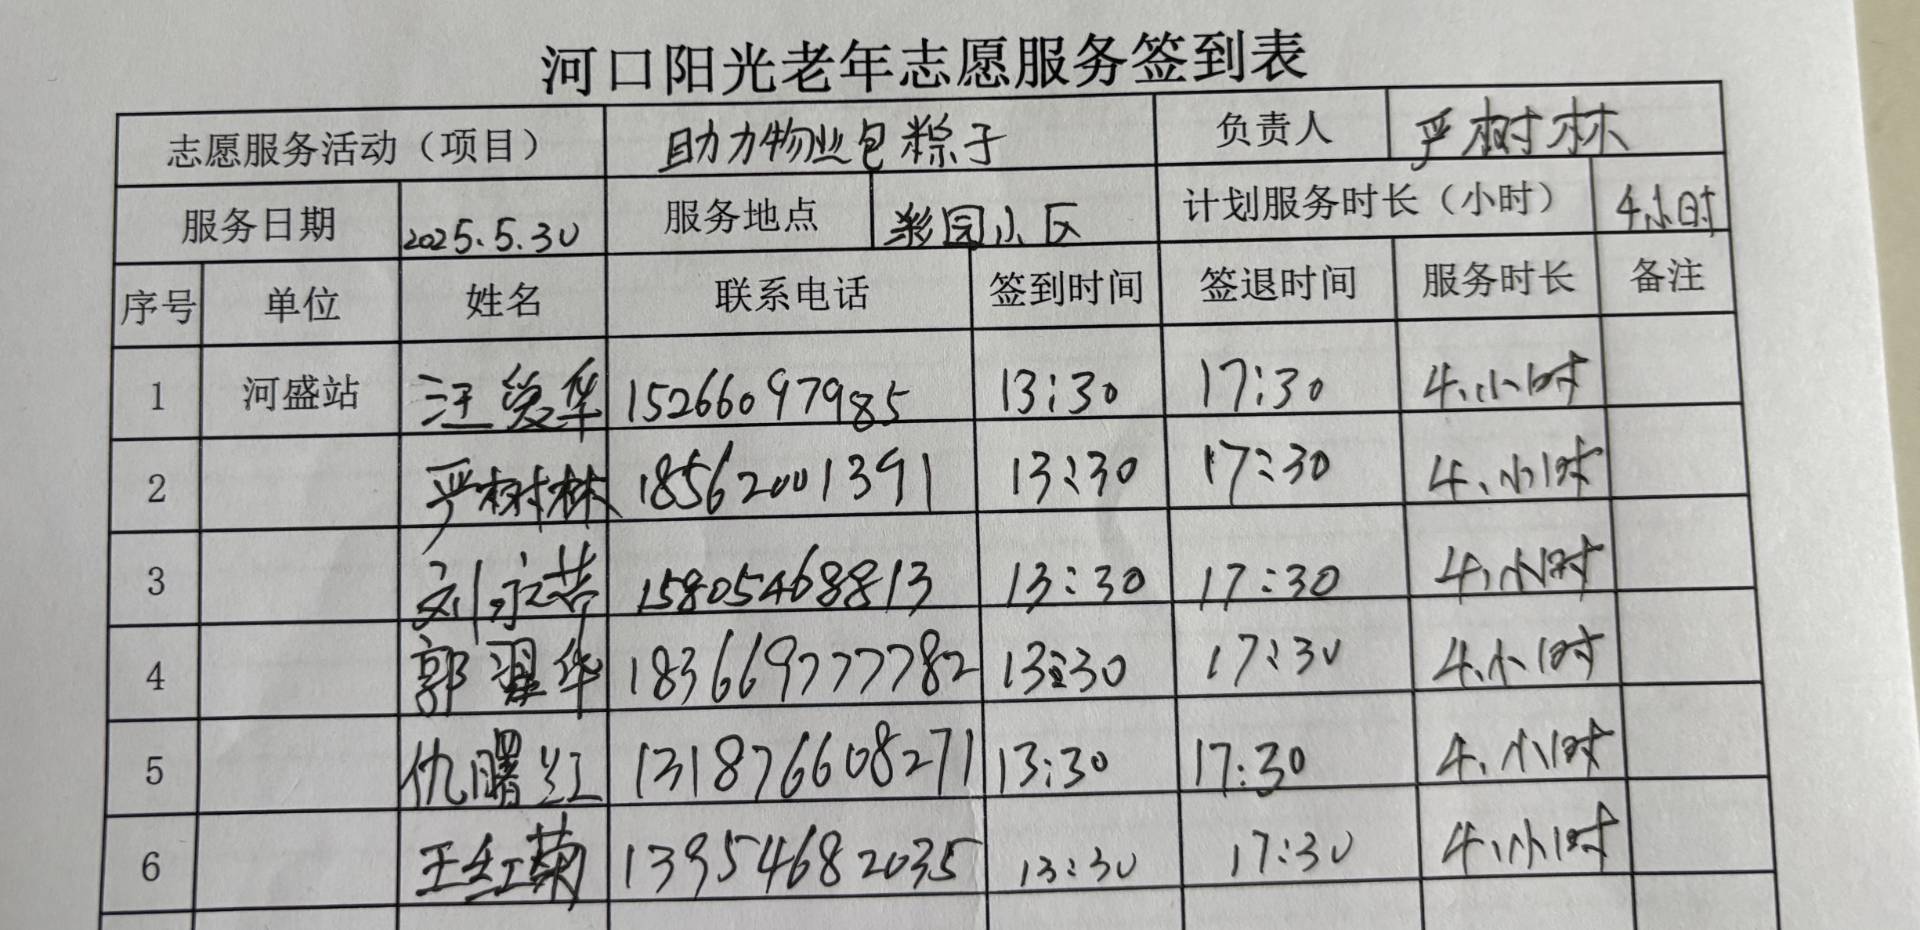 河口阳光老年志愿服务签到表
志愿服务活动（项目） 助力物业包粽子 负责人 严树林
服务日期 2025.5.30 服务地点 彩园小区 计划服务时长（小时） 4小时
序号 单位 姓名 联系电话 签到时间 签退时间 服务时长 备注
1 河盛站 汪爱华 15266097985 13:30 17:30 4.小时
2 严树林 18562001391 13:30 17:30 4.小时
3 刘永芸 15805468813 13:30 17:30 4.小时
4 郭翠华 183669777782 13:30 17:30 4.小时
5 仇曙红 131876608271 13:30 17:30 4.小时
6 王红菊 13954682035 13:30 17:30 4.小时